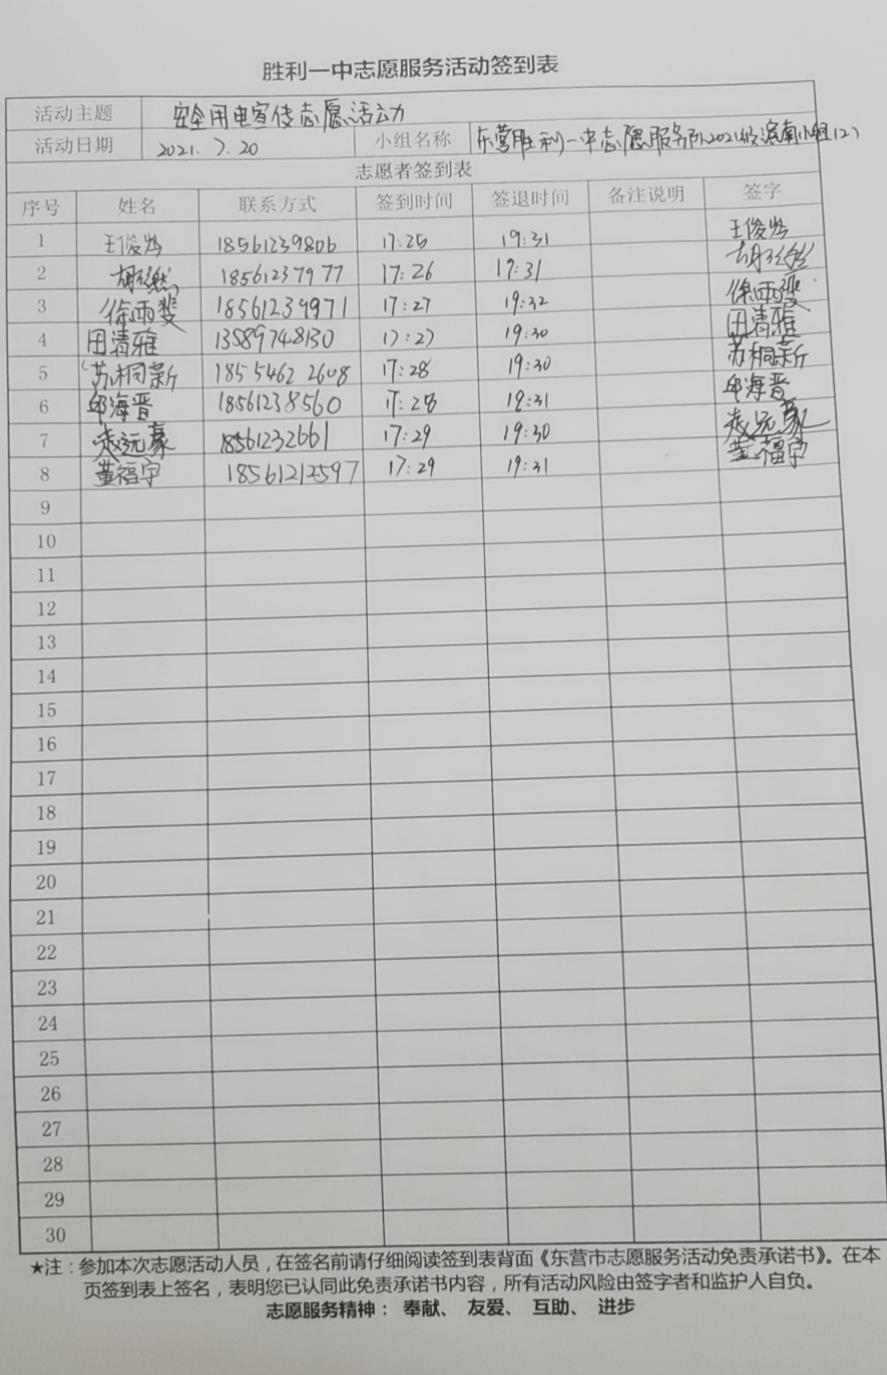 胜利一中志愿服务活动签到表
活动主题 安全用电宣传志愿活动
活动日期 2021.7.20 小组名称 东营胜利一中志愿服务队2021级滨南小组(2)
志愿者签到表
序号 姓名 联系方式 签到时间 签退时间 备注说明 签字
1 王俊 18561239806 17:25 19:31 王俊
2 胡 18561237977 17:26 19:31 胡
3 徐雨斐 18561239971 17:27 19:32 徐雨斐
4 田清雅 13589748130 17:27 19:30 田清雅
5 苏桐新 185 5462 2608 17:28 19:30 苏桐新
6 邱海晋 18561238560 17:28 19:31 邱海晋
7 赵远豪 18561232661 17:29 19:30 赵远豪
8 董福宇 18561212597 17:29 19:31 董福宇
9
10
11
12
13
14
15
16
17
18
19
20
21
22
23
24
25
26
27
28
29
30
★注：参加本次志愿活动人员，在签名前请仔细阅读签到表背面《东营市志愿服务活动免责承诺书》。在本
页签到表上签名，表明您已认同此免责承诺书内容，所有活动风险由签字者和监护人自负。
志愿服务精神： 奉献、 友爱、 互助、 进步